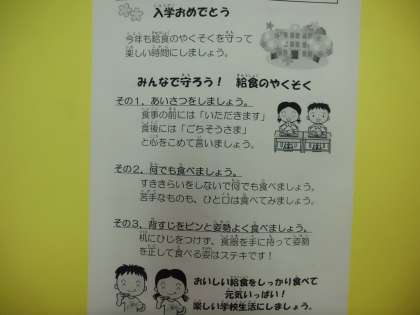 入学おめでとう
今年も給食のやくそくを守って
楽しい時間にしましょう。
みんなで守ろう！　給食のやくそく
その１，あいさつをしましょう。
食事の前には「いただきます」
食後には「ごちそうさま」
と心をこめて言いましょう。
その２，何でも食べましょう。
すききらいをしないで何でも食べましょう。
苦手なものも、ひと口は食べてみましょう。
その３，背すじをピンと姿勢よく食べましょう。
机にひじをつけず、食器を手に持って姿勢
を正して食べる姿はステキです！
おいしい給食をしっかり食べて
元気いっぱい！
楽しい学校生活にしましょう。